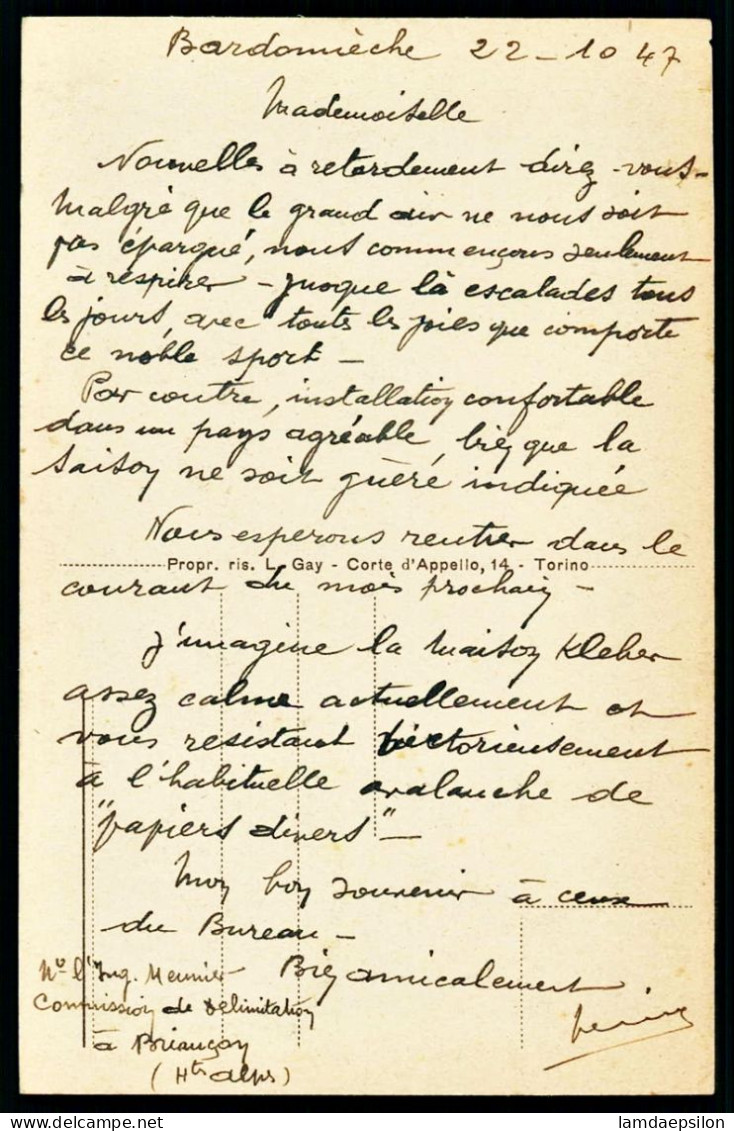 Bardonnèche 22-10 47
Mademoiselle
Nouvelles à retardement direz-vous-
Malgré que le grand air ne nous soit
pas épargné, nous commençons seulement
à respirer - Jusque là escalades tous
les jours, avec toutes les joies que comporte
ce noble sport -
Par contre, installation confortable
dans un pays agréable, bien que la
saison ne soit guère indiquée
Nous esperons rentrer dans le
Propr. ris. L. Gay - Corte d'Appello, 14 - Torino
courant du mois prochain -
J'imagine la maison Kleber
assez calme actuellement et
vous resistant victorieusement
à l'habituelle avalanche de
"papiers divers" -
Mon bon souvenir à ceux
du Bureau -
Bien amicalement
l'Ing. Meunier
Commission de Délimitation
à Briançon
(Htes Alpes)
lamdaepsilon